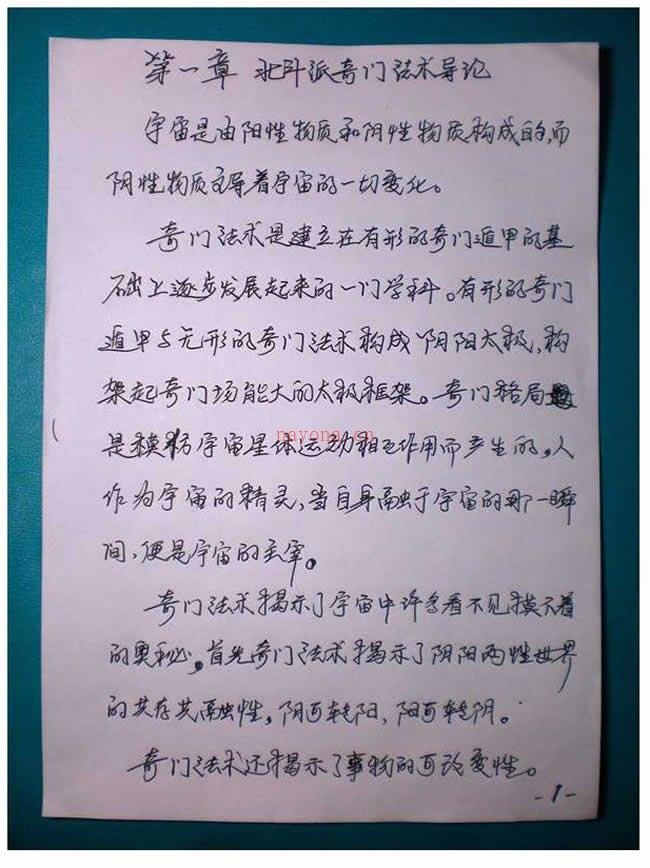 第一章 北斗派奇门法术导论
宇宙是由阳性物质和阴性物质构成的,而
阴性物质主导着宇宙的一切变化。
奇门法术是建立在有形的奇门遁甲的基
础上逐步发展起来的一门学科。有形的奇门
遁甲与无形的奇门法术构成阴阳太极,构
架起奇门场能大的太极框架。奇门格局
是模仿宇宙星体运动相互作用而产生的,人
nayona.cn
作为宇宙的精灵,当自身融于宇宙的那一瞬
间,便是宇宙的主宰。
奇门法术揭示了宇宙中许多看不见摸不着
的奥秘。首先奇门法术揭示了阴阳两性世界
的共存共融性,阴可转阳,阳可转阴。
奇门法术还揭示了事物的可改变性。
-1-